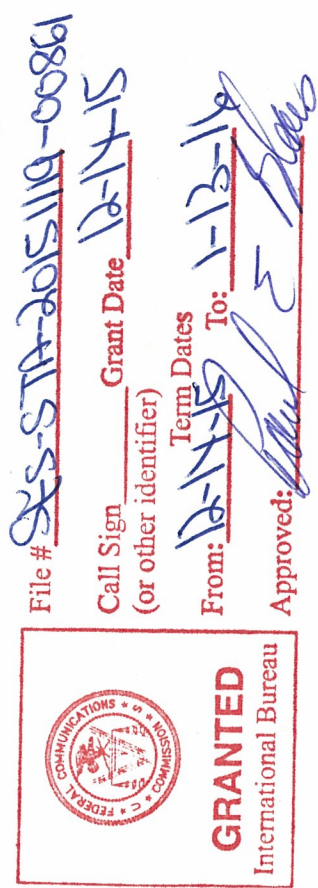 FEDERAL COMMUNICATIONS COMMISSION
GRANTED
International Bureau
File # SES-STA-20151119-00861
Call Sign Grant Date 12-14-15
(or other identifier)
Term Dates
From: 12-14-15 To: 1-13-16
Approved: Paul E Blais